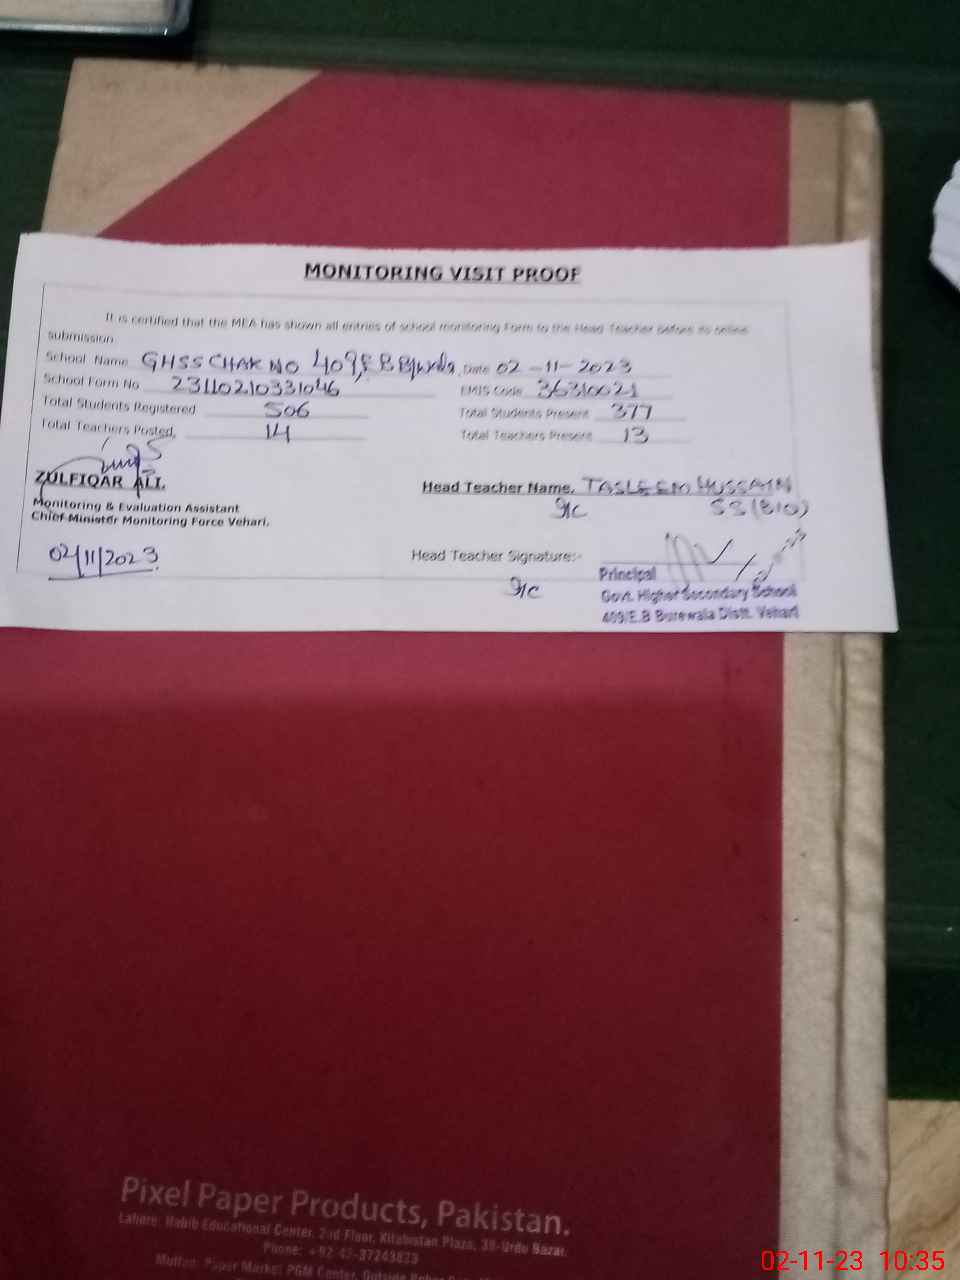 MONITORING VISIT PROOF
It is certified that the MEA has shown all entries of school monitoring Form to the Head Teacher before its online
submission.
School Name GHSS CHAK NO 409/E.B B/wala Date 02-11-2023
School Form No 23110210331046 EMIS Code 36310021
Total Students Registered 506 Total Students Present 377
Total Teachers Posted. 14 Total Teachers Present 13
ZULFIQAR ALI.
Head Teacher Name. TASLEEM HUSSAIN
I/C SS (BIO)
Monitoring & Evaluation Assistant
Chief Minister Monitoring Force Vehari.
02/11/2023
Head Teacher Signature:-
I/C
Principal
Govt. Higher Secondary School
409/E.B Burewala Distt. Vehari
Pixel Paper Products, Pakistan.
Lahore: Habib Educational Center, 2nd Floor, Kitabistan Plaza, 38-Urdu Bazar.
Phone: +92 42-37243823
Multan: Paper Market PGM Center, Outside
02-11-23 10:35